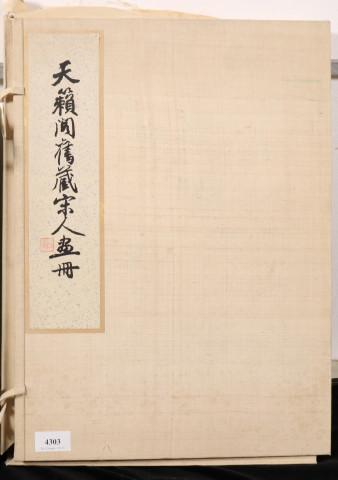 天籟閣舊藏宋人畫冊
4303